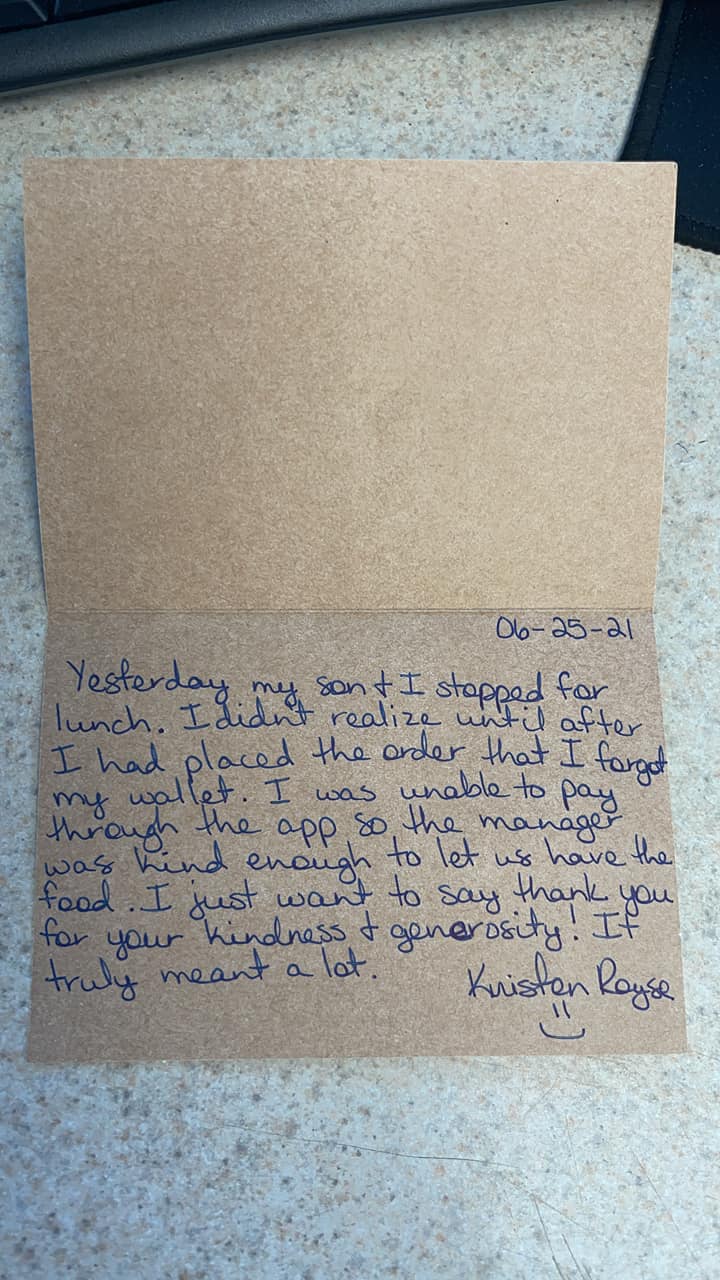 06-25-21
Yesterday my son + I stopped for
lunch. I didn't realize until after
I had placed the order that I forgot
my wallet. I was unable to pay
through the app so the manager
was kind enough to let us have the
food. I just want to say thank you
for your kindness + generosity! It
truly meant a lot.
Kristen Royse